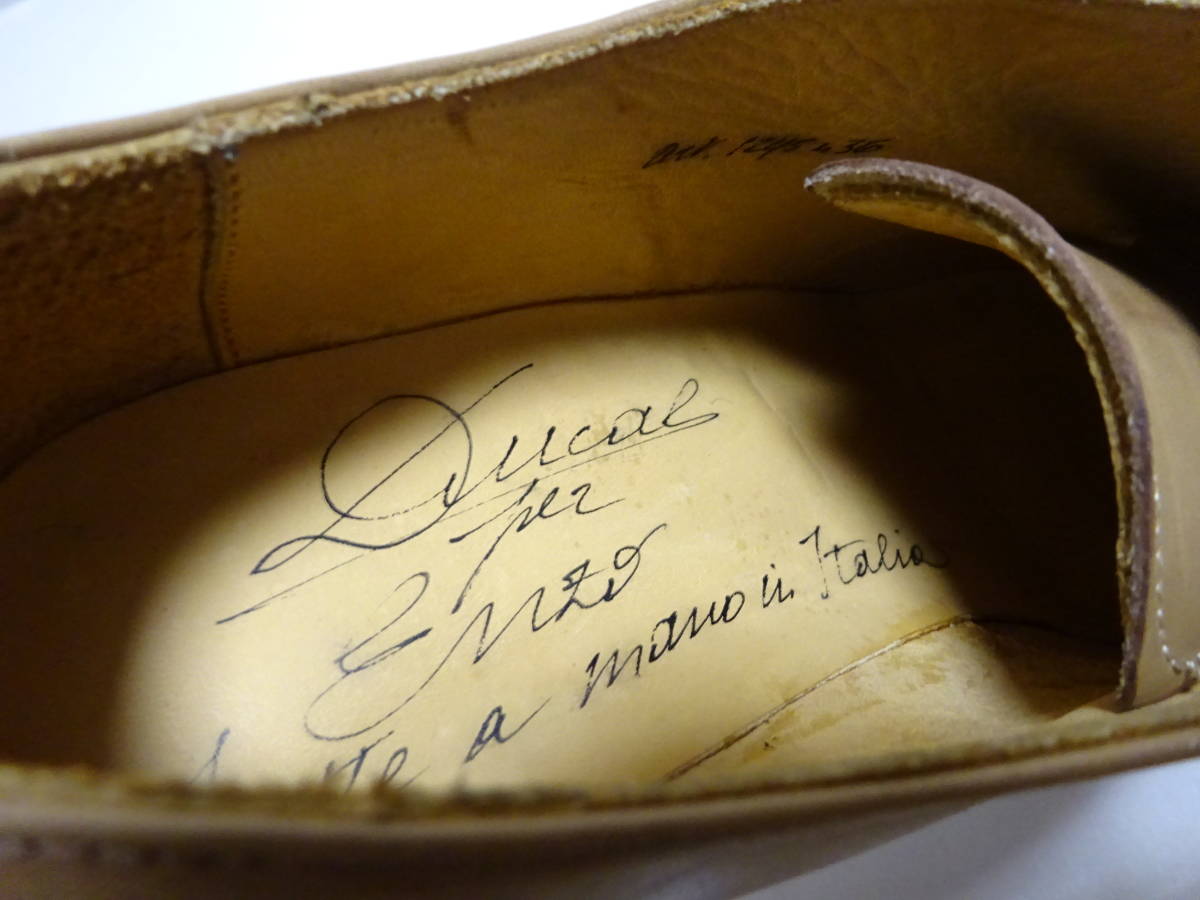 art. 1245 n 36
Ducal
per
Enzo
a mano in Italia